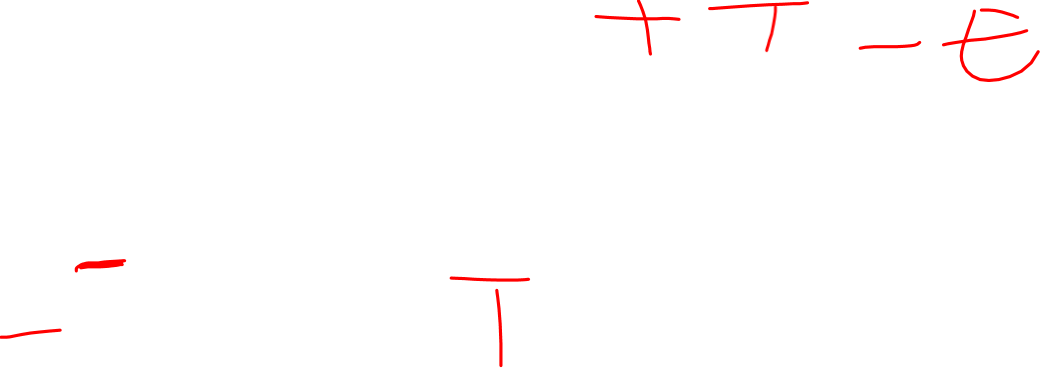 + T - E
- T
-